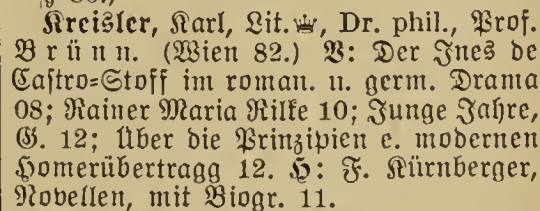 Kreisler, Karl, Lit.♕, Dr. phil., Prof.
Brünn. (Wien 82.) V: Der Ines de
Castro=Stoff im roman. u. germ. Drama
08; Rainer Maria Rilke 10; Junge Jahre,
G. 12; Über die Prinzipien e. modernen
Homerübertragg 12. H: F. Kürnberger,
Novellen, mit Biogr. 11.